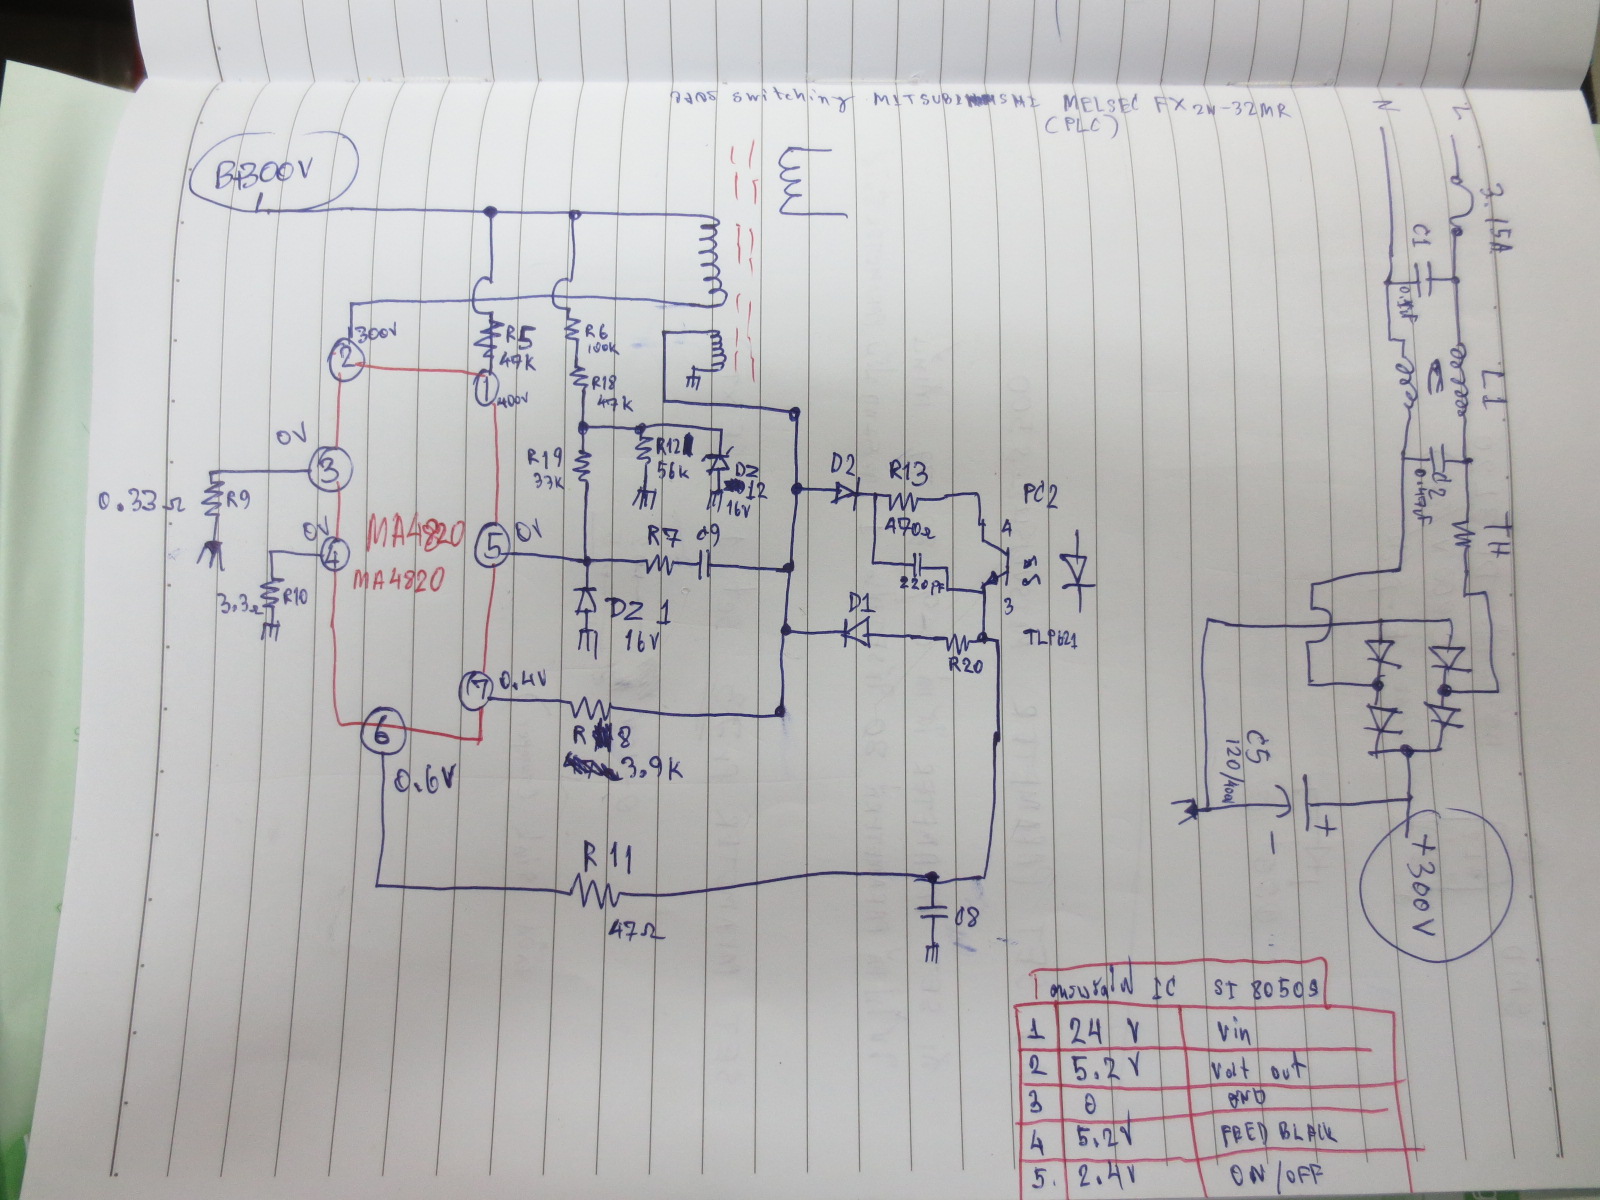 วงจร switching MITSUBISHI MELSEC FX2N-32MR
(PLC)
B+300V
300V
2
R5
47K
1
400V
R6
100K
R18
47K
0V
3
0.33Ω
R9
0V
4
3.3Ω
R10
MA4820
MA4820
R19
33K
R12
56K
DZ
12
16V
5
0V
R7
C9
DZ 1
16V
7
0.4V
R 8
3.9K
6
0.6V
R 11
47Ω
C8
D2
R13
470Ω
220pF
D1
R20
PC2
4
3
TLP621
N
L
3.15A
C1
L1
C2
0.47uF
TH
C5
120/400V
+
-
+300V
IC SI 8050S
1 24 V Vin
2 5.2V Volt out
3 0 GND
4 5.2V FEED BLACK
5. 2.4V ON/OFF